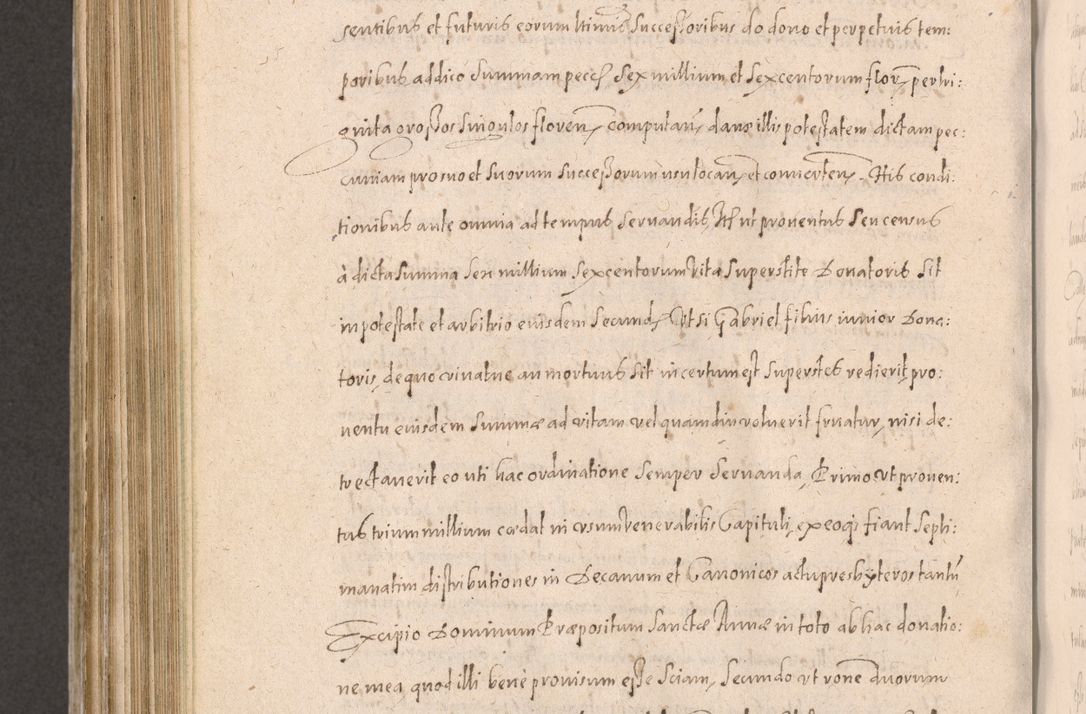 sentibus et futuris eorum ltimis successoribus do dono et perpetuis tem:
poribus addico summam pecu sex millium et sexcentorum floren per tri:
ginta grossos singulos floren computan dans illis potestatem dictam pec:
cuniam pro suo et suorum successorum usu locan et convertен. His condi:
tionibus ante omnia ad tempus servandis, Ith ut proventus seu census
à dicta summa sex millium sexcentorum vita superstite Donatoris sit
in potestate et arbitrio eiusdem Secund Ut si Gabriel filius iunior Dona:
toris, de quo vivat ne an mortuus sit incertum est superstes redierit pro:
ventu eiusdem summæ ad vitam vel quamdiu voluerit fruatur, nisi de:
trectaverit eo uti hac ordinatione semper servanda, Primo ut proven:
tus trium millium cædat in usum Venerabilis Capituli, ex eoqs fiant septi:
manatim distributiones in Decanum et Canonicos actu presbyteros tantu
Excipio Dominum Præpositum Sanctæ Annæ in toto ab hac donatio:
ne mea, quod illi bene provisum esse sciam, Secundo ut rone duorum